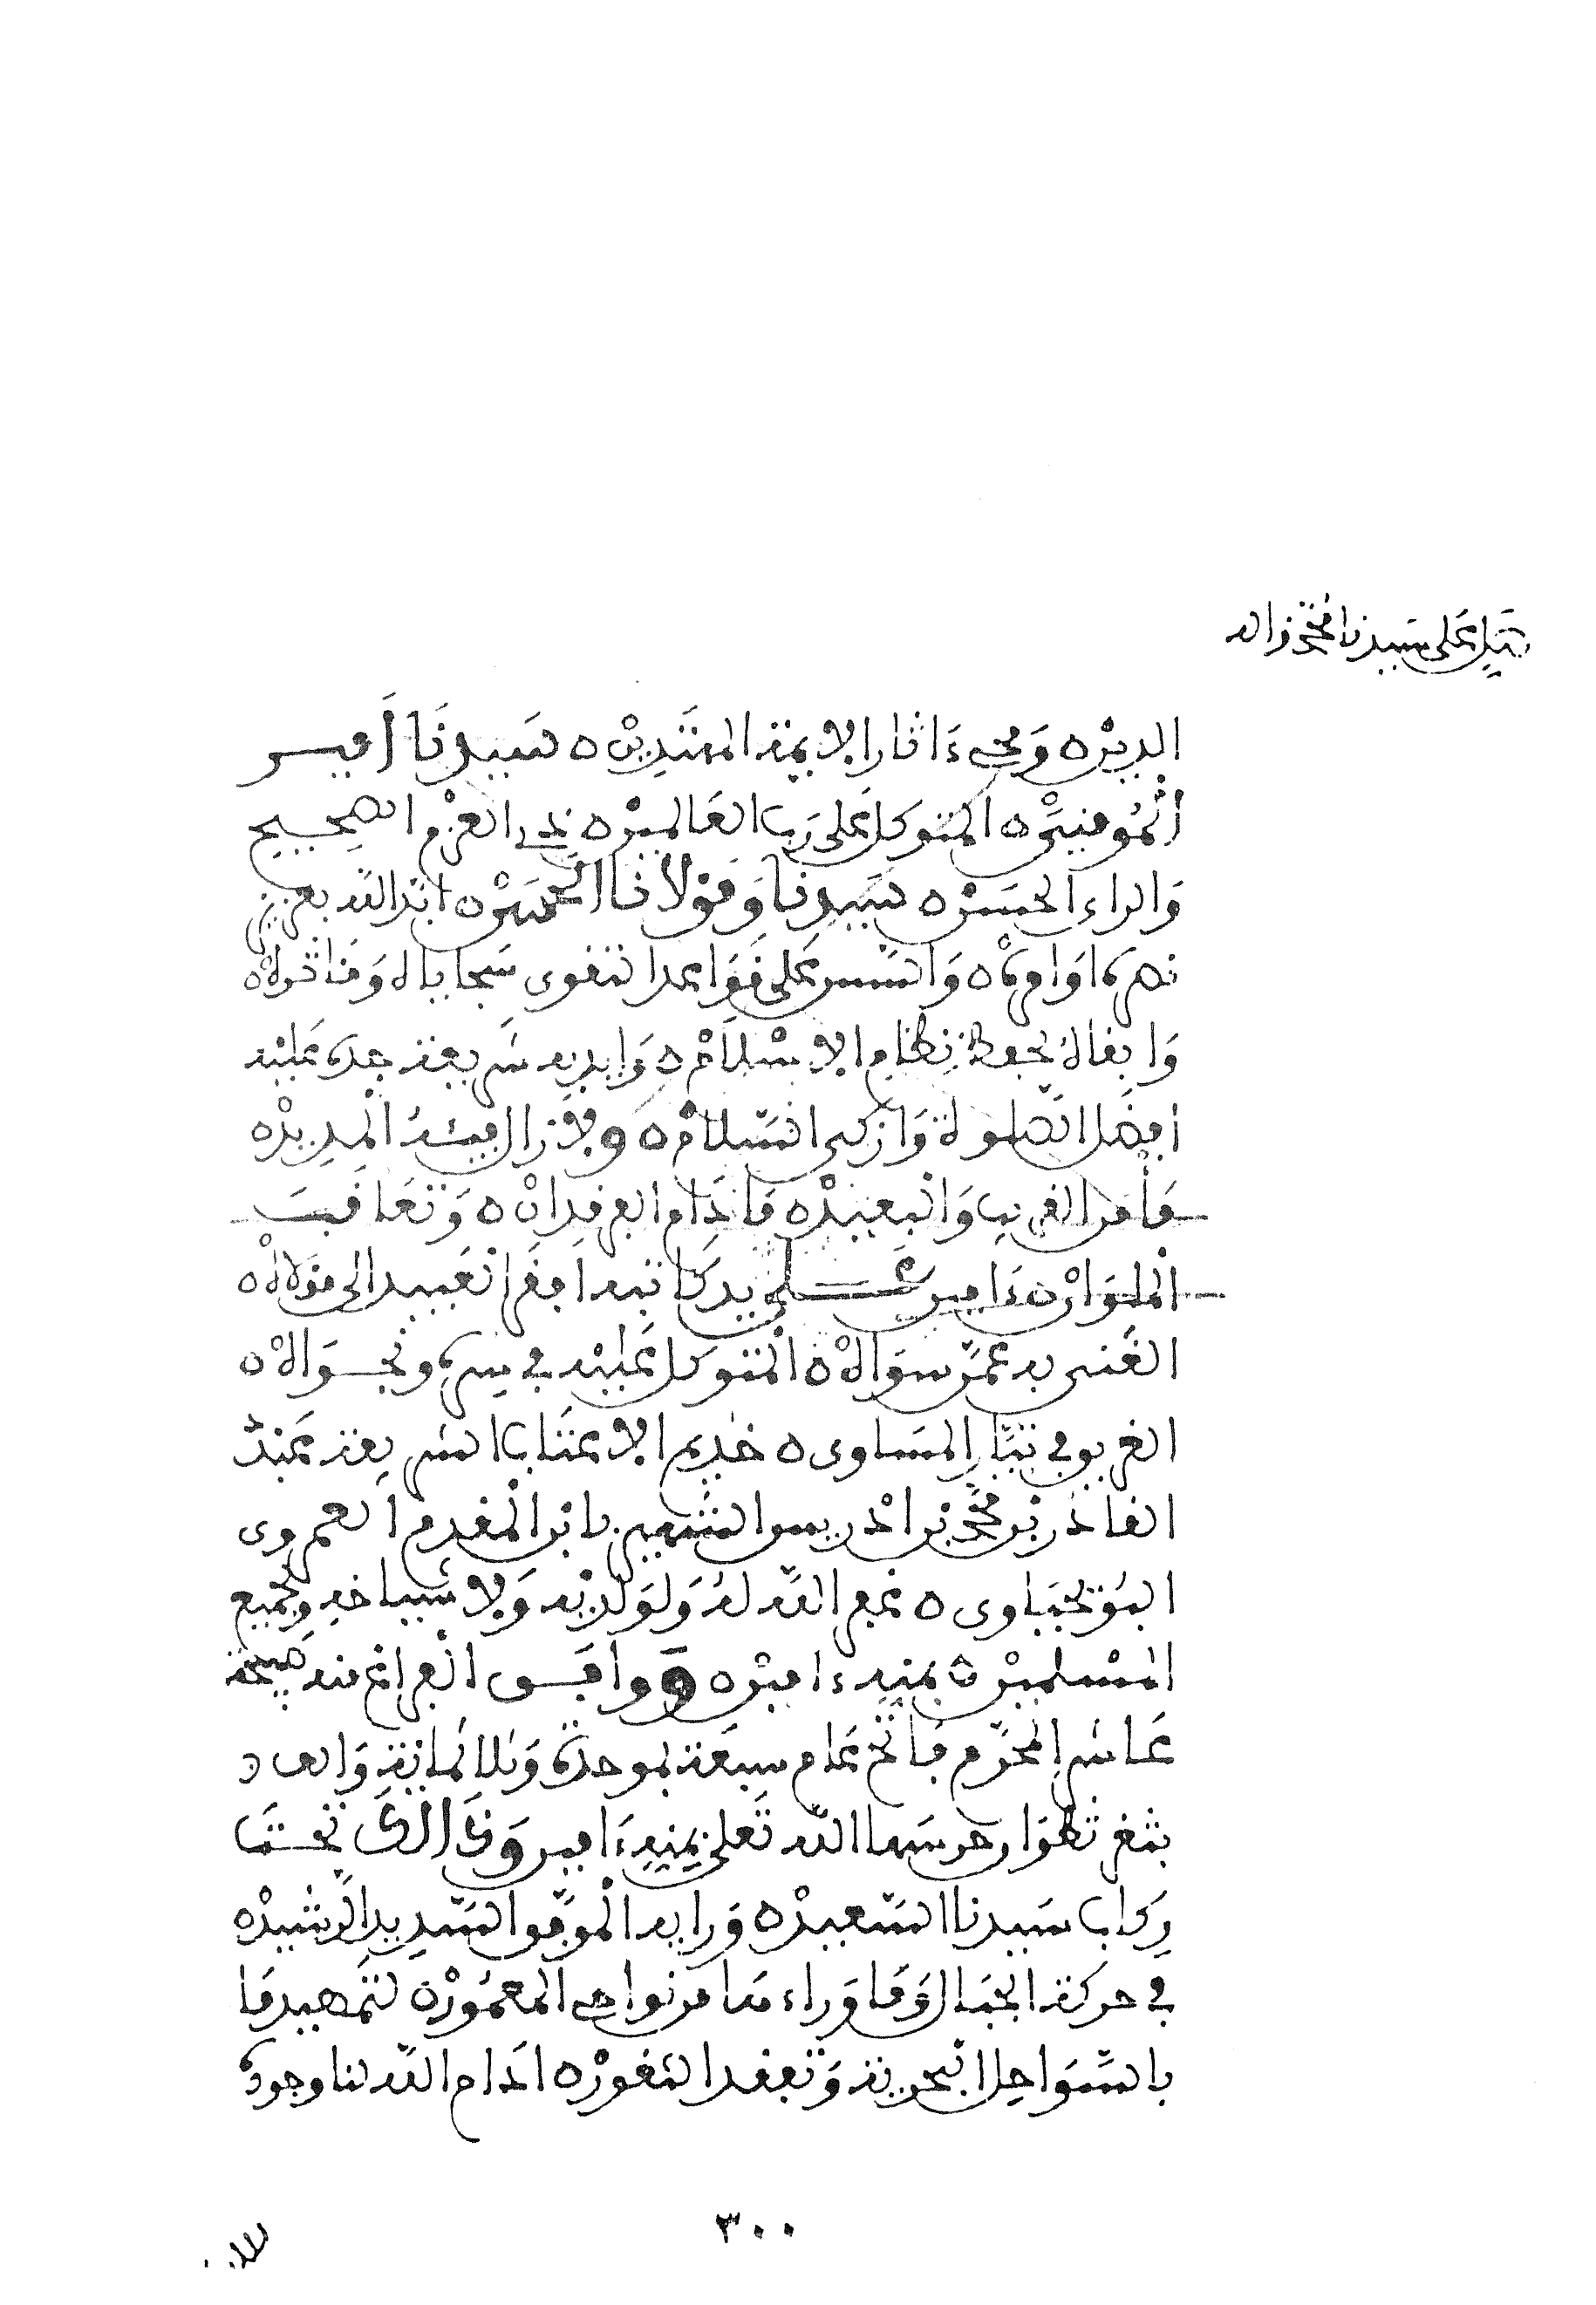 على سيدنا محمد واله
الدين ومحيي ءاثار الايمة المهتدين سيدنا أمير
المومنين المتوكل على رب العالمين ذي العزم الصحيح
والراي الحسن سيدنا ومولانا الحسن ايد الله بعزيز
نصره اوامره واسس على قواعد التقوى سجاياه ومئاثره
وابقاه لحفظ نظام الاسلام وايد به شريعة جده عليه
افضل الصلوة وازكى السلام ولا زال بيته المديد
مأمن القريب والبعيد ما دام الفرقدان وتعاقب
الملوان ءامين على يد كاتبه افقر العبيد الى مولاه
الغني به عمن سواه المتوكل عليه في سره ونجواه
الغريق في تيار المساوي خديم الاعتاب الشريفة عبد
القادر بن محمد بن ادريس الشهير بابن المقدم العمروي
البوخباوي غفر الله له ولوالديه ولاشياخه ولجميع
المسلمين بمنه ءامين ووافق الفراغ منه صبيحة
عاشر المحرم فاتح عام سبعة بموحدة وثلاثمائة والف
بثغر تطوان حرسها الله تعلى بمنه ءامين وذلك تحت
ركاب سيدنا السعيد ورايه الموفق السديد الرشيد
في حركة الجبال وما وراءها من نواحي المعمور لتمهيد ما
بالسواحل البحرية وتفقد الثغور ادام الله لنا وجوده
٣٠٠